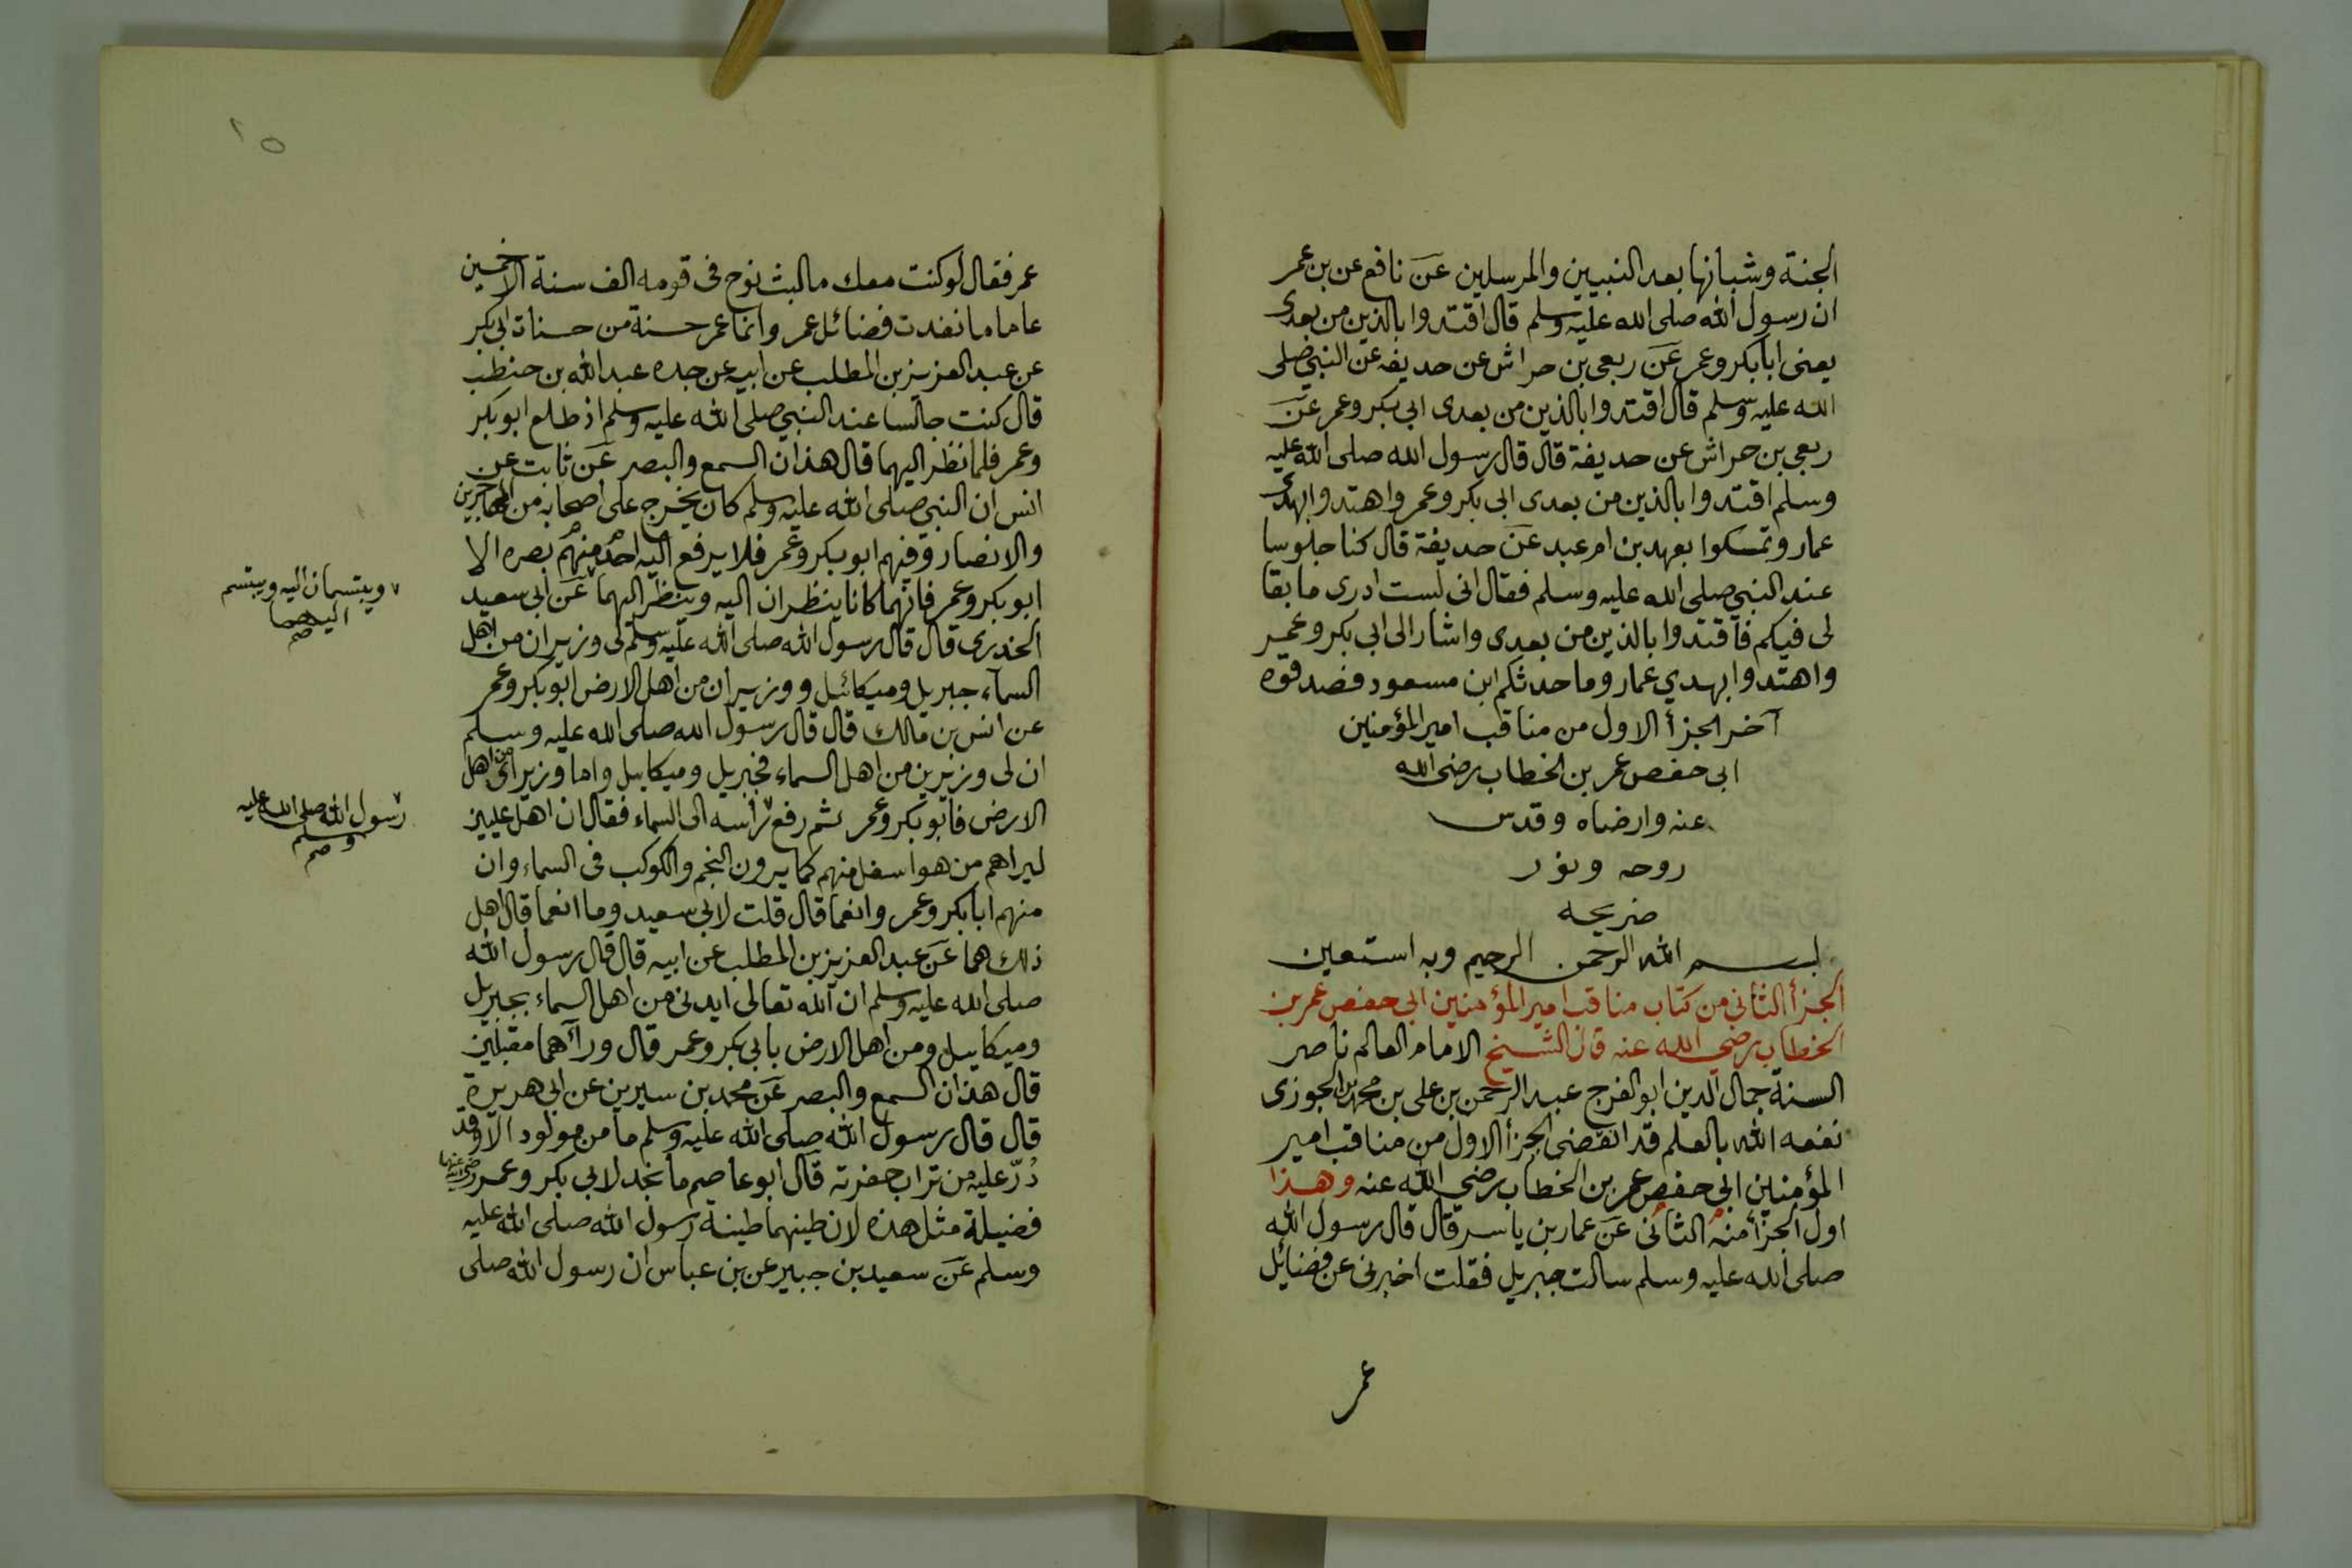 الجنة وشبانها بعد النبيين والمرسلين عن نافع عن بن عمر
ان رسول الله صلى الله عليه وسلم قال اقتدوا بالذين من بعدى
يعنى ابا بكر وعمر عن ربعى بن حراش عن حديفه عن النبي صلى
الله عليه وسلم قال اقتدوا بالذين من بعدى ابى بكر وعمر عن
ربعى بن حراش عن حديفة قال قال رسول الله صلى الله عليه
وسلم اقتدوا بالذين من بعدى ابى بكر وعمر واهتدوا بهدى
عمار وتمسكوا بعهد بن ام عبد عن حديفة قال كنا جلوسا
عند النبي صلى الله عليه وسلم فقال انى لست ادرى ما بقا
لى فيكم فاقتدوا بالذين من بعدى واشار الى ابى بكر وعمر
واهتدوا بهدي عمار وما حدثكم ابن مسعود فصدقوه
آخر الجزأ الاول من مناقب امير المؤمنين
ابى حفص عمر بن الخطاب رضى الله
عنه وارضاه وقدس
روحه ونور
ضريحه
بسم الله الرحمن الرحيم وبه استعين
الجزأ الثانى من كتاب مناقب امير المؤمنين ابى حفص عمر بن
الخطاب رضي الله عنه قال الشيخ الامام العالم ناصر
السنة جمال الدين ابو الفرج عبد الرحمن بن على بن محمد بن الجوزى
نفعه الله بالعلم قد انقضى الجزأ الاول من مناقب امير
المؤمنين ابي حفص عمر بن الخطاب رضي الله عنه وهذا
اول الجزأ منه الثانى عن عمار بن ياسر قال قال رسول الله
صلى الله عليه وسلم سالت جبريل فقلت اخبرنى عن فضائل
عمر
١٥
عمر فقال لو كنت معك ما لبث نوح فى قومه الف سنة الا خمسين
عاما ما نفدت فضائل عمر وانما عمر حسنة من حسنات ابى بكر
عن عبد العزيز بن المطلب عن ابيه عن جده عبد الله بن حنطب
قال كنت جالسا عند النبي صلى الله عليه وسلم اذ طلع ابو بكر
وعمر فلما نظر اليهما قال هذان السمع والبصر عن ثابت عن
انس ان النبي صلى الله عليه وسلم كان يخرج على اصحابه من المهاجرين
والانصار وفيهم ابو بكر وعمر فلا يرفع اليه احد منهم بصره الا
ابو بكر وعمر فانهما كانا ينظران اليه وينظر اليهما عن ابى سعيد
ويبتسمان اليه ويبتسم
اليهما
صح
الخدرى قال قال رسول الله صلى الله عليه وسلم لى وزيران من اهل
السماء جبريل وميكائيل ووزيران من اهل الارض ابو بكر وعمر
عن انس بن مالك قال قال رسول الله صلى الله عليه وسلم
ان لى وزيرين من اهل السماء فجبريل وميكاييل واما وزيراى من اهل
الارض فابو بكر وعمر ثم رفع راسه الى السماء فقال ان اهل عليين
رسول الله صلى الله عليه
وسلم
صح
ليراهم من هو اسفل منهم كما يرون النجم والكوكب فى السماء وان
منهم ابا بكر وعمر وانعما قال قلت لابى سعيد وما انعما قال اهل
ذلك هما عن عبد العزيز بن المطلب عن ابيه قال قال رسول الله
صلى الله عليه وسلم ان الله تعالى ايدنى من اهل السماء بجبريل
وميكاييل ومن اهل الارض بابى بكر وعمر قال ورآهما مقبلين
قال هذان السمع والبصر عن محمد بن سيرين عن ابى هريرة
قال قال رسول الله صلى الله عليه وسلم ما من مولود الا وقد
ذر عليه من تراب حفرته قال ابو عاصم ما نجد لابى بكر وعمر رضى الله عنهما
فضيلة مثل هذه لان طينهما طينة رسول الله صلى الله عليه
وسلم عن سعيد بن جبير عن بن عباس ان رسول الله صلى